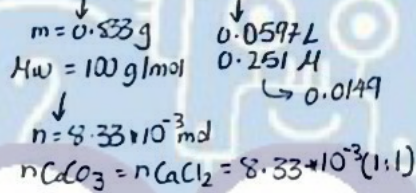 m = 0.833g 0.0597L
Mw = 100 g/mol 0.251 M
↳ 0.0149
n = 8.33*10⁻³ mol
nCaCO3 = nCaCl2 = 8.33*10⁻³ (1:1)